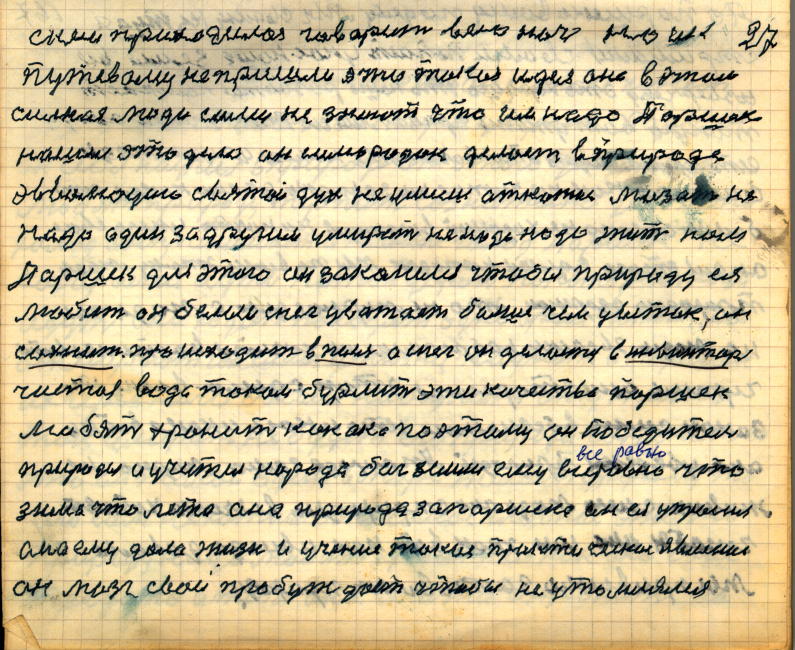 сыем приходилоз говорит вено ноч 27
путевому непришли это токоя идея она в этом
силная люди сами не знают что им надо Паршек
нашол это дело он самородок делает в природе
эвалюцию святой дух не умеш мозат не
надо один за другим умират не надо надо жит нам
Паршек для этого он закалился чтобы природу ея
любит он белой снег уважает болше чем цветок, он
сохнит. происходит в пыл а снег он делоется в
чистоя вода током бурлит эти качества паршек
любят хранит как ока поэтому он победител
природы и учител народа бог земли ему всеровно что
все равно
зима что лето она природа запаршека он ея упросил
она ему дала жизн и учение токое практическое явление
он мозг свой пробуждает чтобы не утомлялся